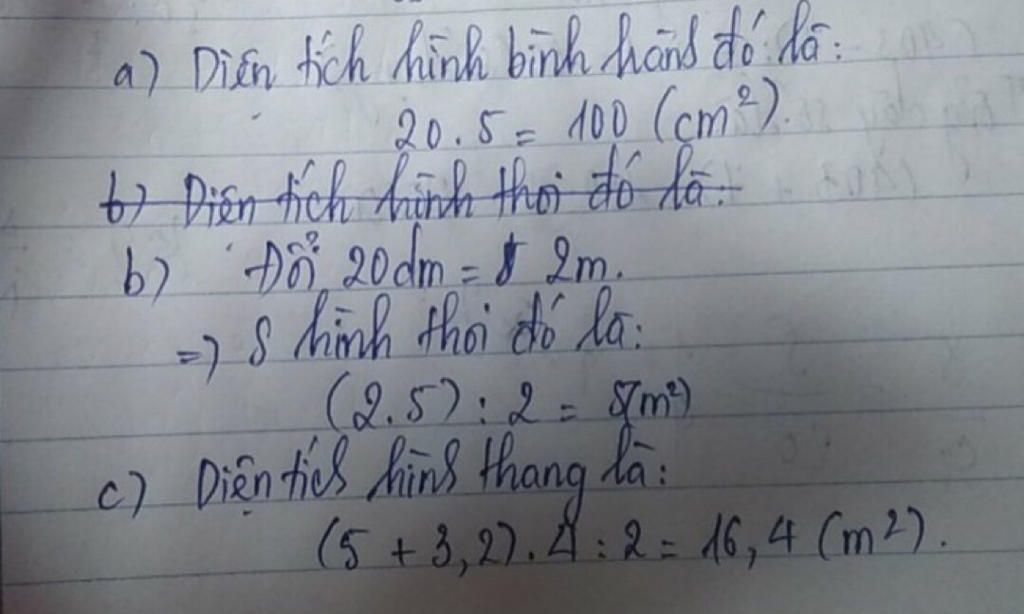 a) Diện tích hình bình hành đó là:
20.5 = 100 (cm²).
b) Diện tích hình thoi đó là:
b) Đổi 20dm = 2m.
=> S hình thoi đó là:
(2.5) : 2 = 5(m²)
c) Diện tích hình thang là:
(5 + 3,2).4 : 2 = 16,4 (m²).